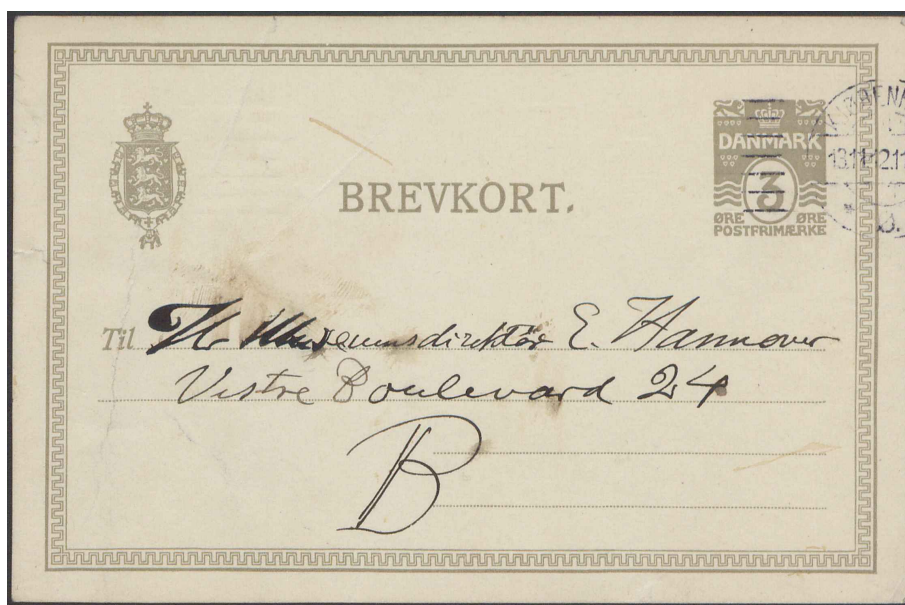 BREVKORT.
DANMARK
3
ØRE ØRE
POSTFRIMÆRKE
13.11.12.11
B.
Til Hr Museumsdirektör E. Hannover
Vestre Boulevard 24
B